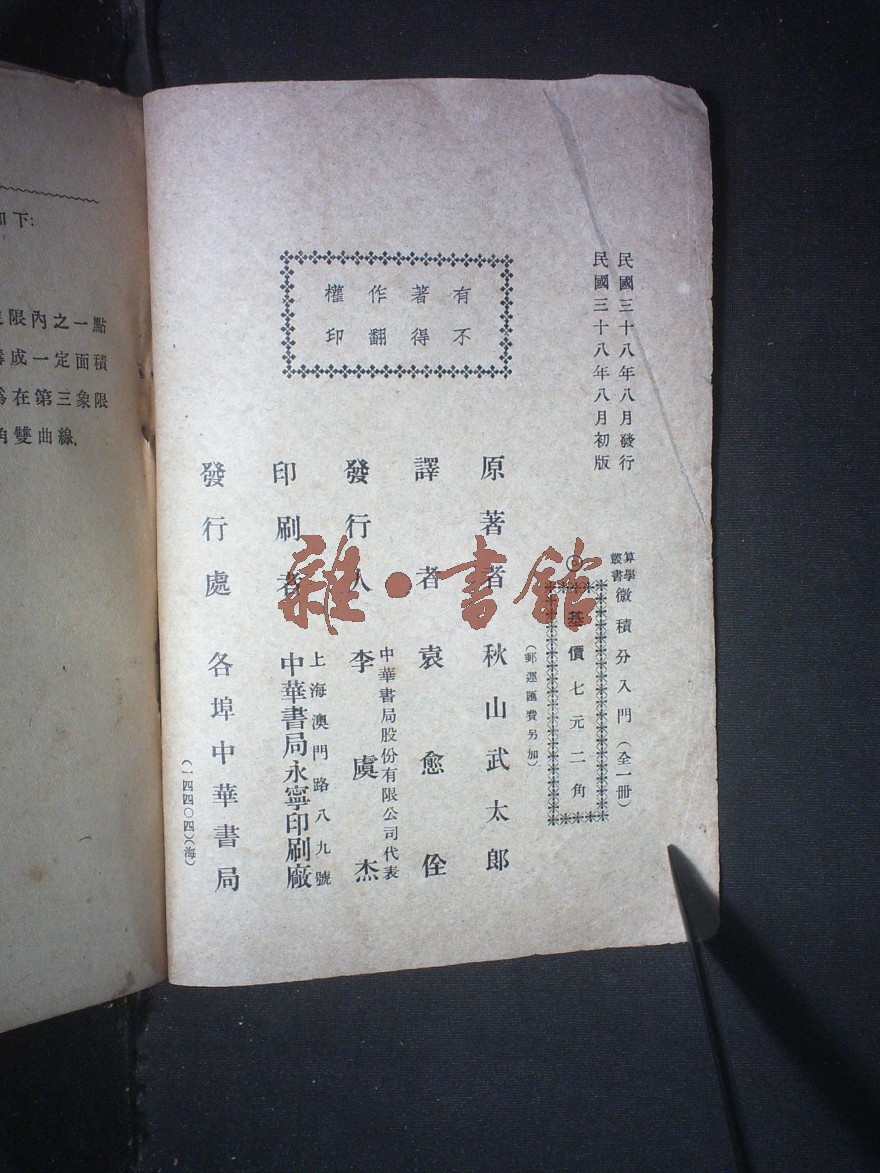 民國三十八年八月發行
民國三十八年八月初版
算學
叢書
微積分入門（全一冊）
基價七元二角
（郵運匯費另加）
有著作權
不得翻印
原著者 秋山武太郎
譯者 袁愈佺
中華書局股份有限公司代表
發行人 李虞杰
上海澳門路八九號
印刷者 中華書局永寧印刷廠
發行處 各埠中華書局
（一四四〇四）（海）
雜·書館
如下：
限內之一點
成一定面積
在第三象限
角雙曲線．